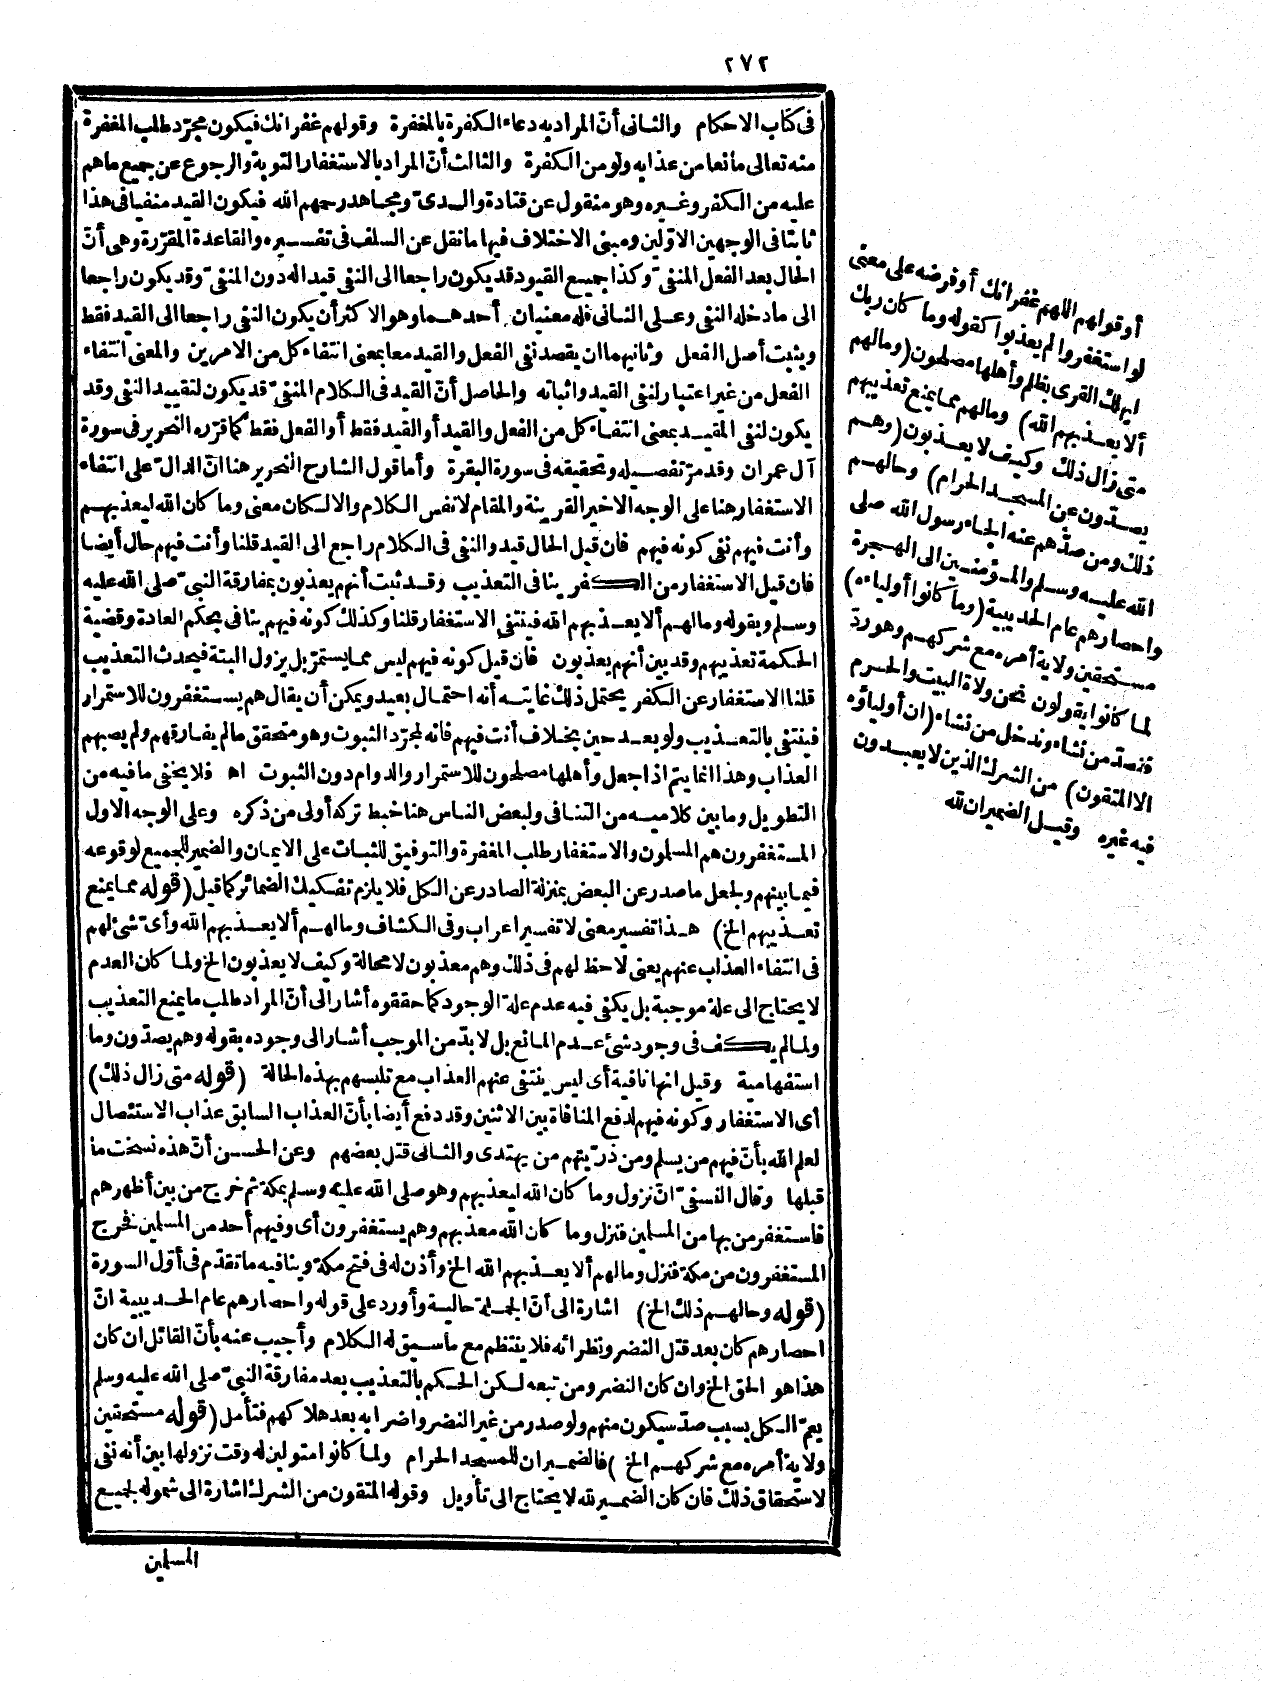 ٢٧٢
فى كتاب الاحكام والثانى أنّ المراد به دعاء الكفرة بالمغفرة وقولهم غفرانك فيكون مجرّد طلب المغفرة
منه تعالى مانعا من عذابه ولو من الكفرة والثالث أنّ المراد بالاستغفار التوبة والرجوع عن جميع ما هم
عليه من الكفر وغيره وهو منقول عن قتادة والسدىّ ومجاهد رحمهم الله فيكون القيد منفيا فى هذا
ثابتا فى الوجهين الاوّلين ومبنى الاختلاف فيها ما نقل عن السلف فى تفسيره والقاعدة المقرّرة وهى أنّ
الحال بعد الفعل المنفىّ وكذا جميع القيود قد يكون راجعا الى النفى قيد اله دون المنفىّ وقد يكون راجعا
الى ما دخله النفى وعلى الثانى فله معنيان أحدهما وهو الاكثر أن يكون النفى راجعا الى القيد فقط
ويثبت أصل الفعل وثانيهما ان يقصد نفى الفعل والقيد معا بمعنى انتفاء كل من الامرين والمعنى انتفاء
الفعل من غير اعتبار لنفى القيد واثباته والحاصل أنّ القيد فى الكلام المنفىّ قد يكون لتقييد النفى وقد
يكون لنفى المقيد بمعنى انتفاء كل من الفعل والقيد أو القيد فقط أو الفعل فقط كما قرّره النحرير فى سورة
آل عمران وقد مرّ تفصيله وتحقيقه فى سورة البقرة وأما قول الشارح النحرير هنا انّ الدالّ على انتفاء
الاستغفار هنا على الوجه الاخير القرينة والمقام لا نفس الكلام والا لكان معنى وما كان الله ليعذبهم
وأنت فيهم نفى كونه فيهم فان قيل الحال قيد والنفى فى الكلام راجع الى القيد قلنا وأنت فيهم حال أيضا
فان قيل الاستغفار من الكفر ينافى التعذيب وقد ثبت أنهم يعذبون بمفارقة النبىّ صلى الله عليه
وسلم وبقوله وما لهم ألا يعذبهم الله فينتفى الاستغفار قلنا وكذلك كونه فيهم ينافى بحكم العادة وقضية
الحكمة تعذيبهم وقد بين أنهم يعذبون فان قيل كونه فيهم ليس مما يستمرّ بل يزول البتة فيحدث التعذيب
قلنا الاستغفار عن الكفر يحتمل ذلك غايته أنه احتمال بعيد ويمكن أن يقال هم يستغفرون للاستمرار
فينتفى بالتعذيب ولو بعد حين بخلاف أنت فيهم فانه لمجرّد الثبوت وهو متحقق ما لم يفارقهم ولم يصبهم
العذاب وهذا انما يتم اذا جعل وأهلها مصلحون للاستمرار والدوام دون الثبوت اه فلا يخفى ما فيه من
التطويل وما بين كلاميه من التنافى ولبعض الناس هنا خبط تركه أولى من ذكره وعلى الوجه الاول
المستغفرون هم المسلمون والاستغفار طلب المغفرة والتوفيق للثبات على الايمان والضمير للجميع لوقوعه
فيما بينهم ولجعل ما صدر عن البعض بمنزلة الصادر عن الكل فلا يلزم تفكيك الضمائر كما قيل (قوله مما يمنع
تعذيبهم الخ) هذا تفسير معنى لا تفسير اعراب وفى الكشاف وما لهم ألا يعذبهم الله وأىّ شئ لهم
فى انتفاء العذاب عنهم يعنى لا حظ لهم فى ذلك وهم معذبون لا محالة وكيف لا يعذبون الخ ولما كان العدم
لا يحتاج الى علة موجبة بل يكفى فيه عدم علة الوجود كما حققوه أشار الى أنّ المراد طلب ما يمنع التعذيب
ولما لم يكف فى وجود شئ عدم المانع بل لا بدّ من الموجب أشار الى وجوده بقوله وهم يصدّون وما
استفهامية وقيل انها نافية أى ليس ينتفى عنهم العذاب مع تلبسهم بهذه الحالة (قوله متى زال ذلك)
أى الاستغفار وكونه فيهم لدفع المنافاة بين الاثنين وقد دفع أيضا بأنّ العذاب السابق عذاب الاستئصال
لعلم الله بأنّ فيهم من يسلم ومن ذرّيتهم من يهتدى والثانى قتل بعضهم وعن الحسن أنّ هذه نسخت ما
قبلها وقال النسفىّ انّ نزول وما كان الله ليعذبهم وهو صلى الله عليه وسلم بمكة ثم خرج من بين أظهرهم
فاستغفر من بها من المسلمين فنزل وما كان الله معذبهم وهم يستغفرون أى وفيهم أحد من المسلمين فخرج
المستغفرون من مكة فنزل وما لهم ألا يعذبهم الله الخ وأذن له فى فتح مكة وينافيه ما تقدّم فى أوّل السورة
(قوله وحالهم ذلك الخ) اشارة الى أنّ الجملة حالية وأورد على قوله واحصارهم عام الحديبية انّ
احصارهم كان بعد قتل النضر ونظرائه فلا ينتظم مع ما سيق له الكلام وأجيب عنه بأنّ القائل ان كان
هذا هو الحق الخ وان كان النضر ومن تبعه لكن الحكم بالتعذيب بعد مفارقة النبىّ صلى الله عليه وسلم
يعمّ الكل بسبب صدّ سيكون منهم ولو صدر من غير النضر واضرابه بعد هلاكهم فتأمل (قوله مستحقين
ولاية أمره مع شركهم الخ) فالضميران للمسجد الحرام ولما كانوا متولين له وقت نزولها بين أنه نفى
لاستحقاق ذلك فان كان الضمير لله لا يحتاج الى تأويل وقوله المتقون من الشرك اشارة الى شموله لجميع
المسلمين
أو قولهم اللهم غفرانك أو فرضه على معنى
لو استغفروا لم يعذبوا كقوله وما كان ربك
ليهلك القرى بظلم وأهلها مصلحون (وما لهم
ألا يعذبهم الله) وما لهم مما يمنع تعذيبهم
متى زال ذلك وكيف لا يعذبون (وهم
يصدّون عن المسجد الحرام) وحالهم
ذلك ومن صدّهم عنه الجاء رسول الله صلى
الله عليه وسلم والمؤمنين الى الهجرة
واحصارهم عام الحديبية (وما كانوا أولياءه)
مستحقين ولاية أمره مع شركهم وهو ردّ
لما كانوا يقولون نحن ولاة البيت والحرم
فنصدّ من نشاء وندخل من نشاء (ان أولياؤه
الا المتقون) من الشرك الذين لا يعبدون
فيه غيره وقيل الضميران لله